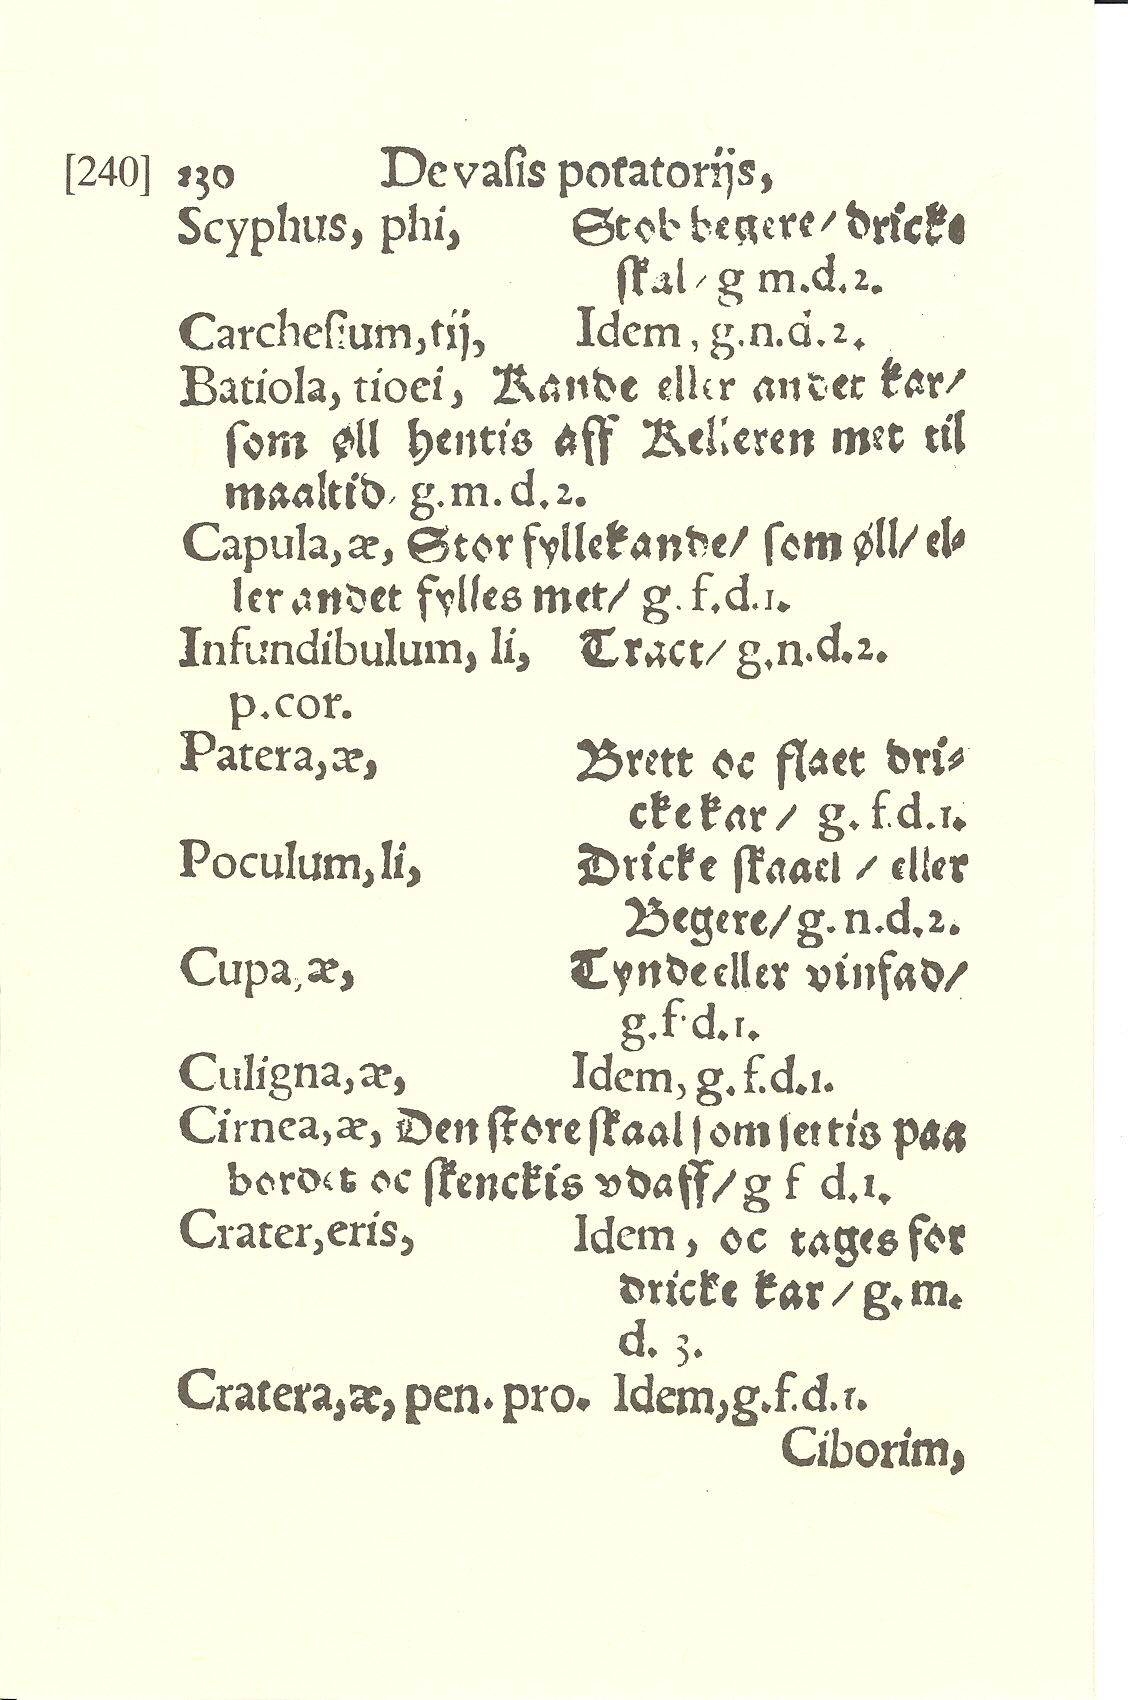 [240] 130 De vasis potatorijs,
Scyphus, phi, Stob begere/ dricke
skal/ g m.d.2.
Carchesium, tij, Idem, g.n.d.2.
Batiola, tioei, Kande eller andet kar/
som øll hentis aff Kelleren met til
maaltid/ g.m.d.2.
Capula, æ, Stor fyllekande/ som øll/ el-
ler andet fylles met/ g.f.d.1.
Infundibulum, li, Tract/ g.n.d.2.
p.cor.
Patera, æ, Brett oc flaet dri-
cke kar/ g.f.d.1.
Poculum, li, Dricke skaael/ eller
Begere/ g.n.d.2.
Cupa, æ, Tynde eller vinfad/
g.f.d.1.
Culigna, æ, Idem, g.f.d.1.
Cirnea, æ, Den store skaal som settis paa
bordet oc skenckis vdaff/ g f d.1.
Crater, eris, Idem, oc tages for
dricke kar/ g.m.
d. 3.
Cratera, æ, pen. pro. Idem, g.f.d.1.
Ciborim,